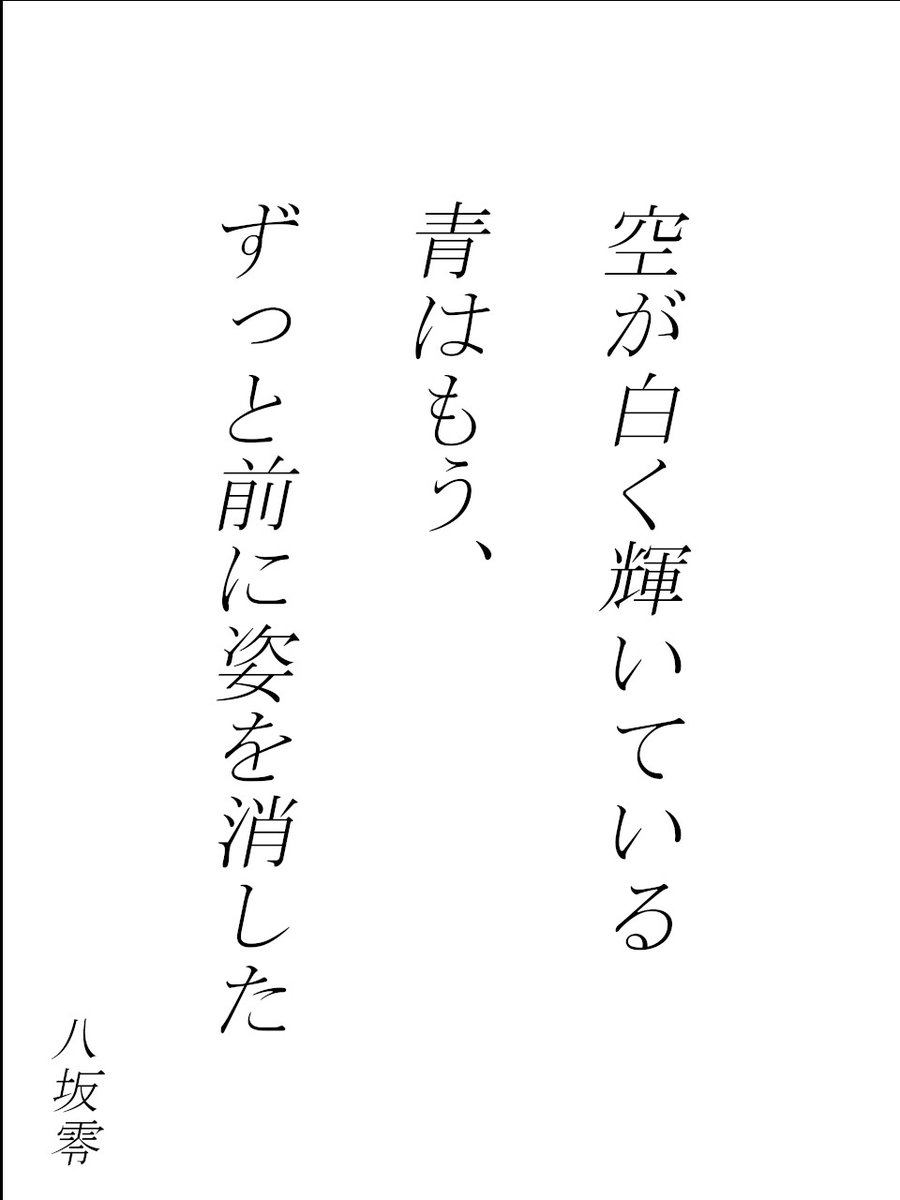 空が白く輝いている
青はもう、
ずっと前に姿を消した
八坂零